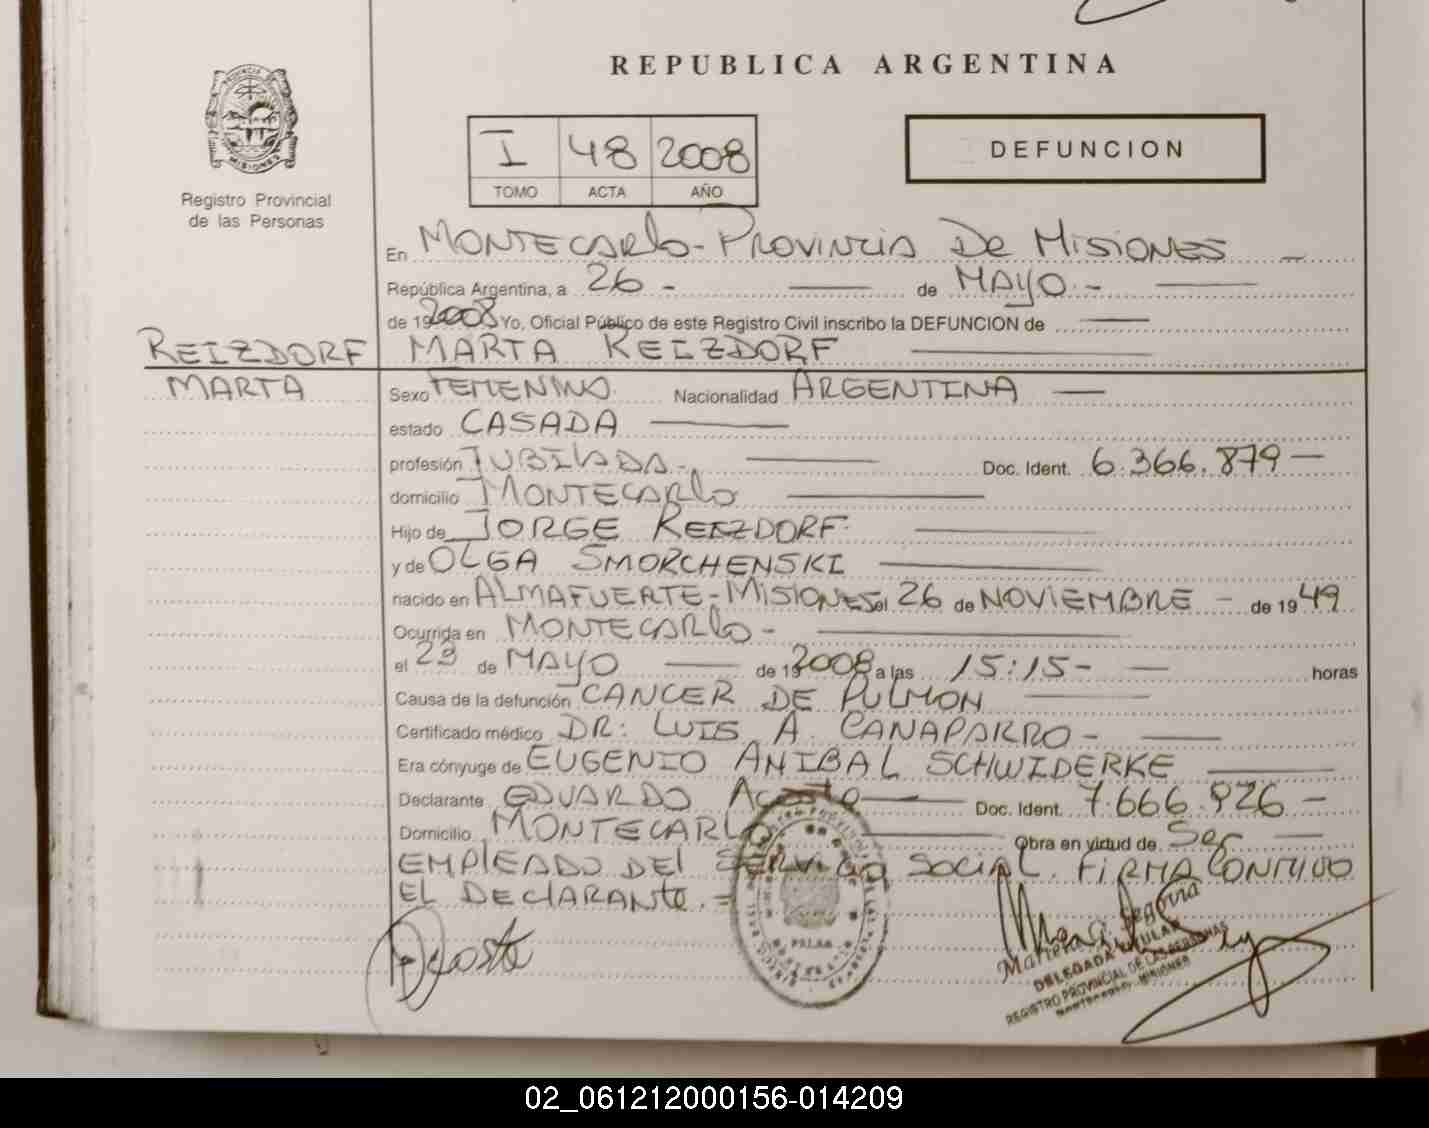 REPUBLICA ARGENTINA
PROVINCIA DE MISIONES
Registro Provincial
de las Personas
I 48 2008
TOMO ACTA AÑO
DEFUNCION
En MONTECARlo - PROVINCIA De MISIONES -
República Argentina, a 26 - de MAYO -
de 192008 Yo, Oficial Público de este Registro Civil inscribo la DEFUNCION de
REIZDORF MARTA REIZDORF
MARTA Sexo FEMENINO Nacionalidad ARGENTINA
estado CASADA
profesión JUBILADA - Doc. Ident. 6.366.879
domicilio MONTECARLO
Hijo de JORGE REIZDORF
y de OLGA SMORCHENSKI
nacido en ALMAFUERTE - MISIONES el 26 de NOVIEMBRE - de 1949
Ocurrida en MONTECARlo -
el 23 de MAYO de 192008 a las 15:15 - horas
Causa de la defunción CANCER DE PULMON
Certificado médico DR: LUIS A. CANAPARRO -
Era cónyuge de EUGENIO ANIBAL SCHWIDERKE
Declarante EDUARDO Acosta Doc. Ident. 7.666.926 -
Domicilio MONTECARLO Obra en virtud de Ser
EMPlEADO DEl SERVICIO SOCIAL. FIRMA CONMIGO
EL DEClARANTE. =
Acosta
Segovia
DELEGADA TITULAR
REGISTRO PROVINCIAL DE LAS PERSONAS
MISIONES
02_061212000156-014209